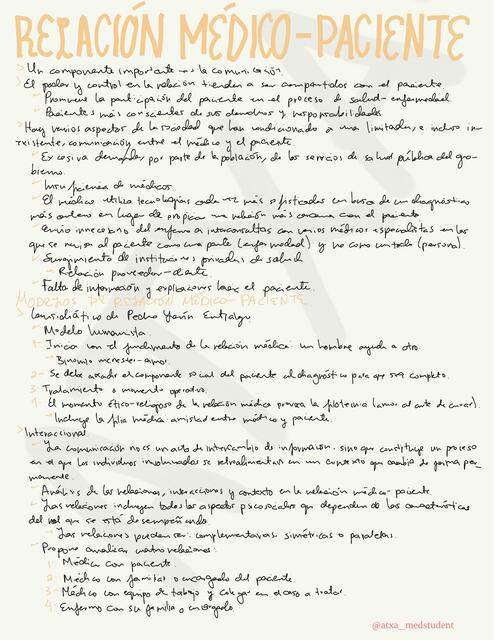 RELACIÓN MÉDICO-PACIENTE
> Un componente importante es la comunicación.
> El poder y control en la relación tienden a ser compartidos con el paciente
- Promueve la participación del paciente en el proceso de salud-enfermedad
- Pacientes más conscientes de sus derechos y responsabilidades
> Hay varios aspectos de la sociedad que han condicionado a una limitada, e incluso in-
existente, comunicación entre el médico y el paciente.
- Excesiva demanda, por parte de la población, de los servicios de salud pública del go-
bierno.
- Insuficiencia de médicos.
- El médico utiliza tecnologías cada vez más sofisticadas en busca de un diagnóstico
más certero en lugar de propiciar una relación más cercana con el paciente
- Envío innecesario del enfermo a interconsultas con varios médicos especialistas en las
que se revisa al paciente como una parte (enfermedad) y no como un todo (persona).
- Surgimiento de instituciones privadas de salud
→ Relación proveedor-cliente.
- Falta de información y explicaciones hacia el paciente.
MODELOS DE RELACIÓN MÉDICO-PACIENTE
> Caracterológico de Pedro Laín Entralgo
- Modelo humanista.
1- Inicia con el fundamento de la relación médica: un hombre ayuda a otro.
→ Binomio menester-amor.
2- Se debe añadir el componente social del paciente al diagnóstico para que sea completo.
3- Tratamiento o momento operativo.
4- El momento ético-religioso de la relación médica provoca la filotecnia (amor al arte de curar).
→ Incluye la filia médica amistad entre médico y paciente.
> Interaccional
- La comunicación no es un acto de intercambio de información, sino que constituye un proceso
en el que los individuos involucrados se retroalimentan en un contexto que cambia de forma per-
manente.
- Análisis de las relaciones, interacciones y contexto en la relación médico-paciente.
- Las relaciones incluyen todos los aspectos psicosociales que dependen de las características
del rol que se está desempeñando.
→ Las relaciones pueden ser: complementarias, simétricas o paralelas.
- Propone analizar cuatro relaciones:
1- Médico con paciente.
2- Médico con familiar o encargado del paciente.
3- Médico con equipo de trabajo y colegas en el caso a tratar.
4- Enfermo con su familia o encargado.
@atxa_medstudent